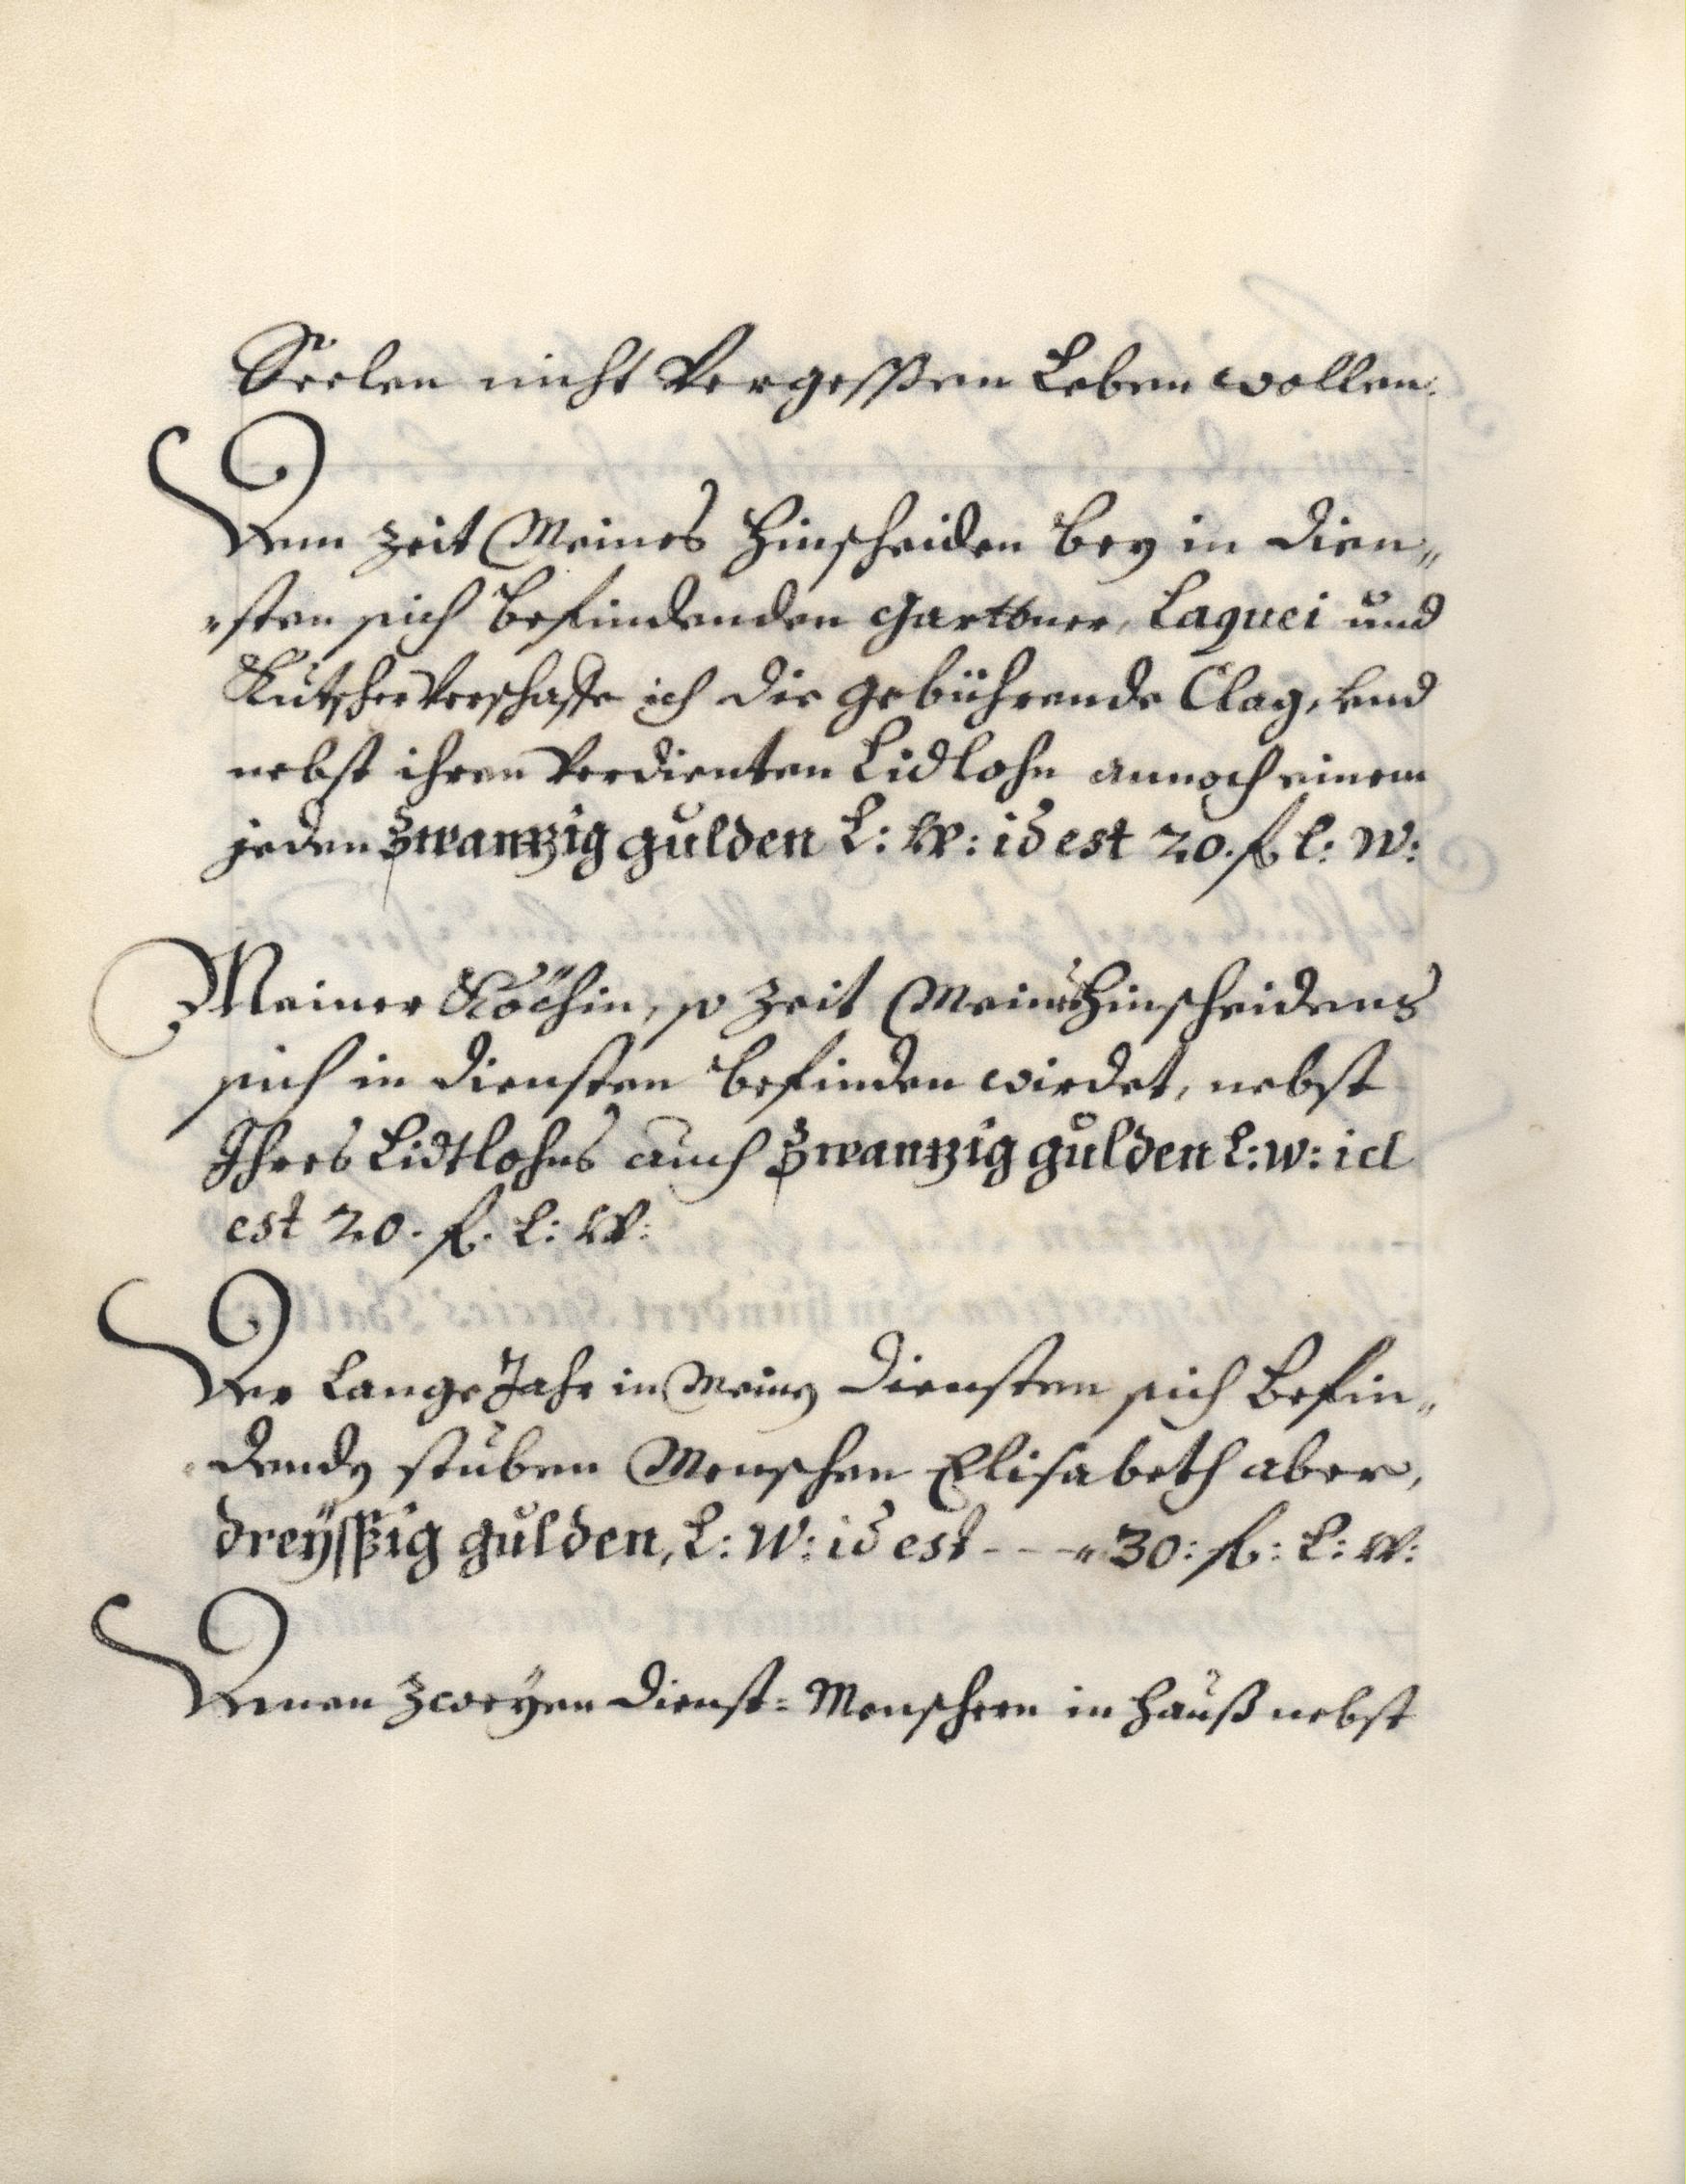 Seelen nicht Vergessen Leben wollen.
Dem zeit Meines Hinscheiden bey in dien„
„sten sich befindenden Garttner, Laquei und
Kutscher Verschaffe ich die gebührende Clag, und
nebst ihren Verdienten Lidlohn annoch einem
jeden Zwantzig gulden L: W: id est 20. fl. L: W:
Meiner Köchin, so zeit Meines Hinscheidens
sich in diensten befinden wirdet, nebst
Ihres Lidtlohns auch Zwantzig gulden L: W: id
est 20. fl. L: W:
Der Lange Jahr in Meinen diensten sich befin„
denden stuben Menschen Elisabeth aber,
dreyssig gulden, L: W: id est - - - „ 30: fl: L: W:
Denen zweyen dienst-Menschern in hauß nebst